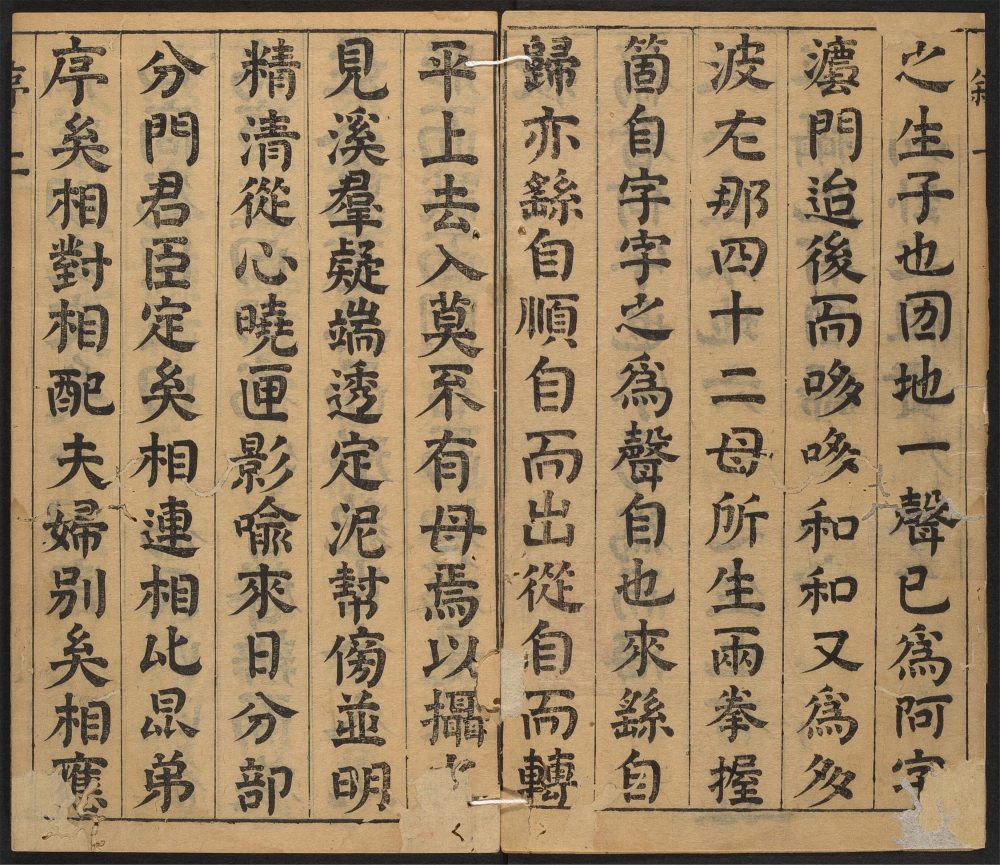 之生子也囝地一聲已爲阿字
灋門迨後而哆哆和和又爲多
波左那四十二母所生兩拳握
箇自字字之爲聲自也來繇自
歸亦繇自順自而出從自而轉
平上去入莫不有母焉以攝
見溪羣疑端透定泥幫傍並明
精清從心曉匣影喻來日分部
分門君臣定矣相連相比昆弟
序矣相對相配夫婦別矣相應
序 二